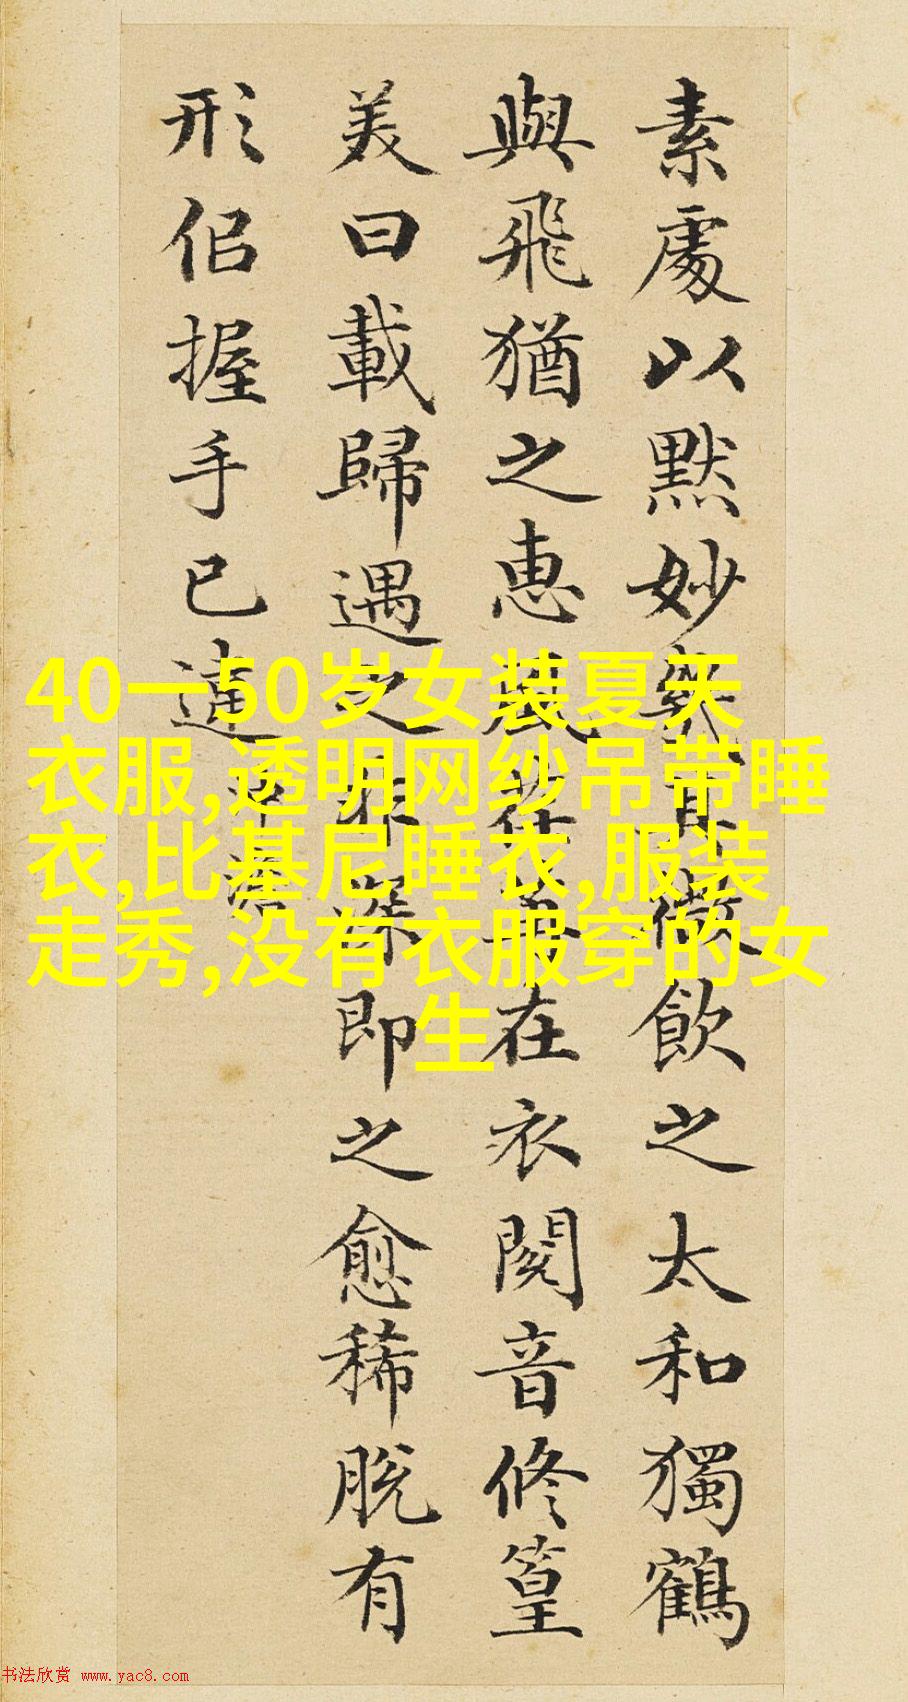 素處以默妙機其微飲之太和獨鶴
與飛猶之惠風荏苒在衣閱音修篁
美曰載歸遇之匪深即之愈稀脫有
形佀握手已違
40一50岁女装夏天
衣服,透明网纱吊带睡
衣,比基尼睡衣,服装
走秀,没有衣服穿的女
生
书法欣赏 www.yac8.com